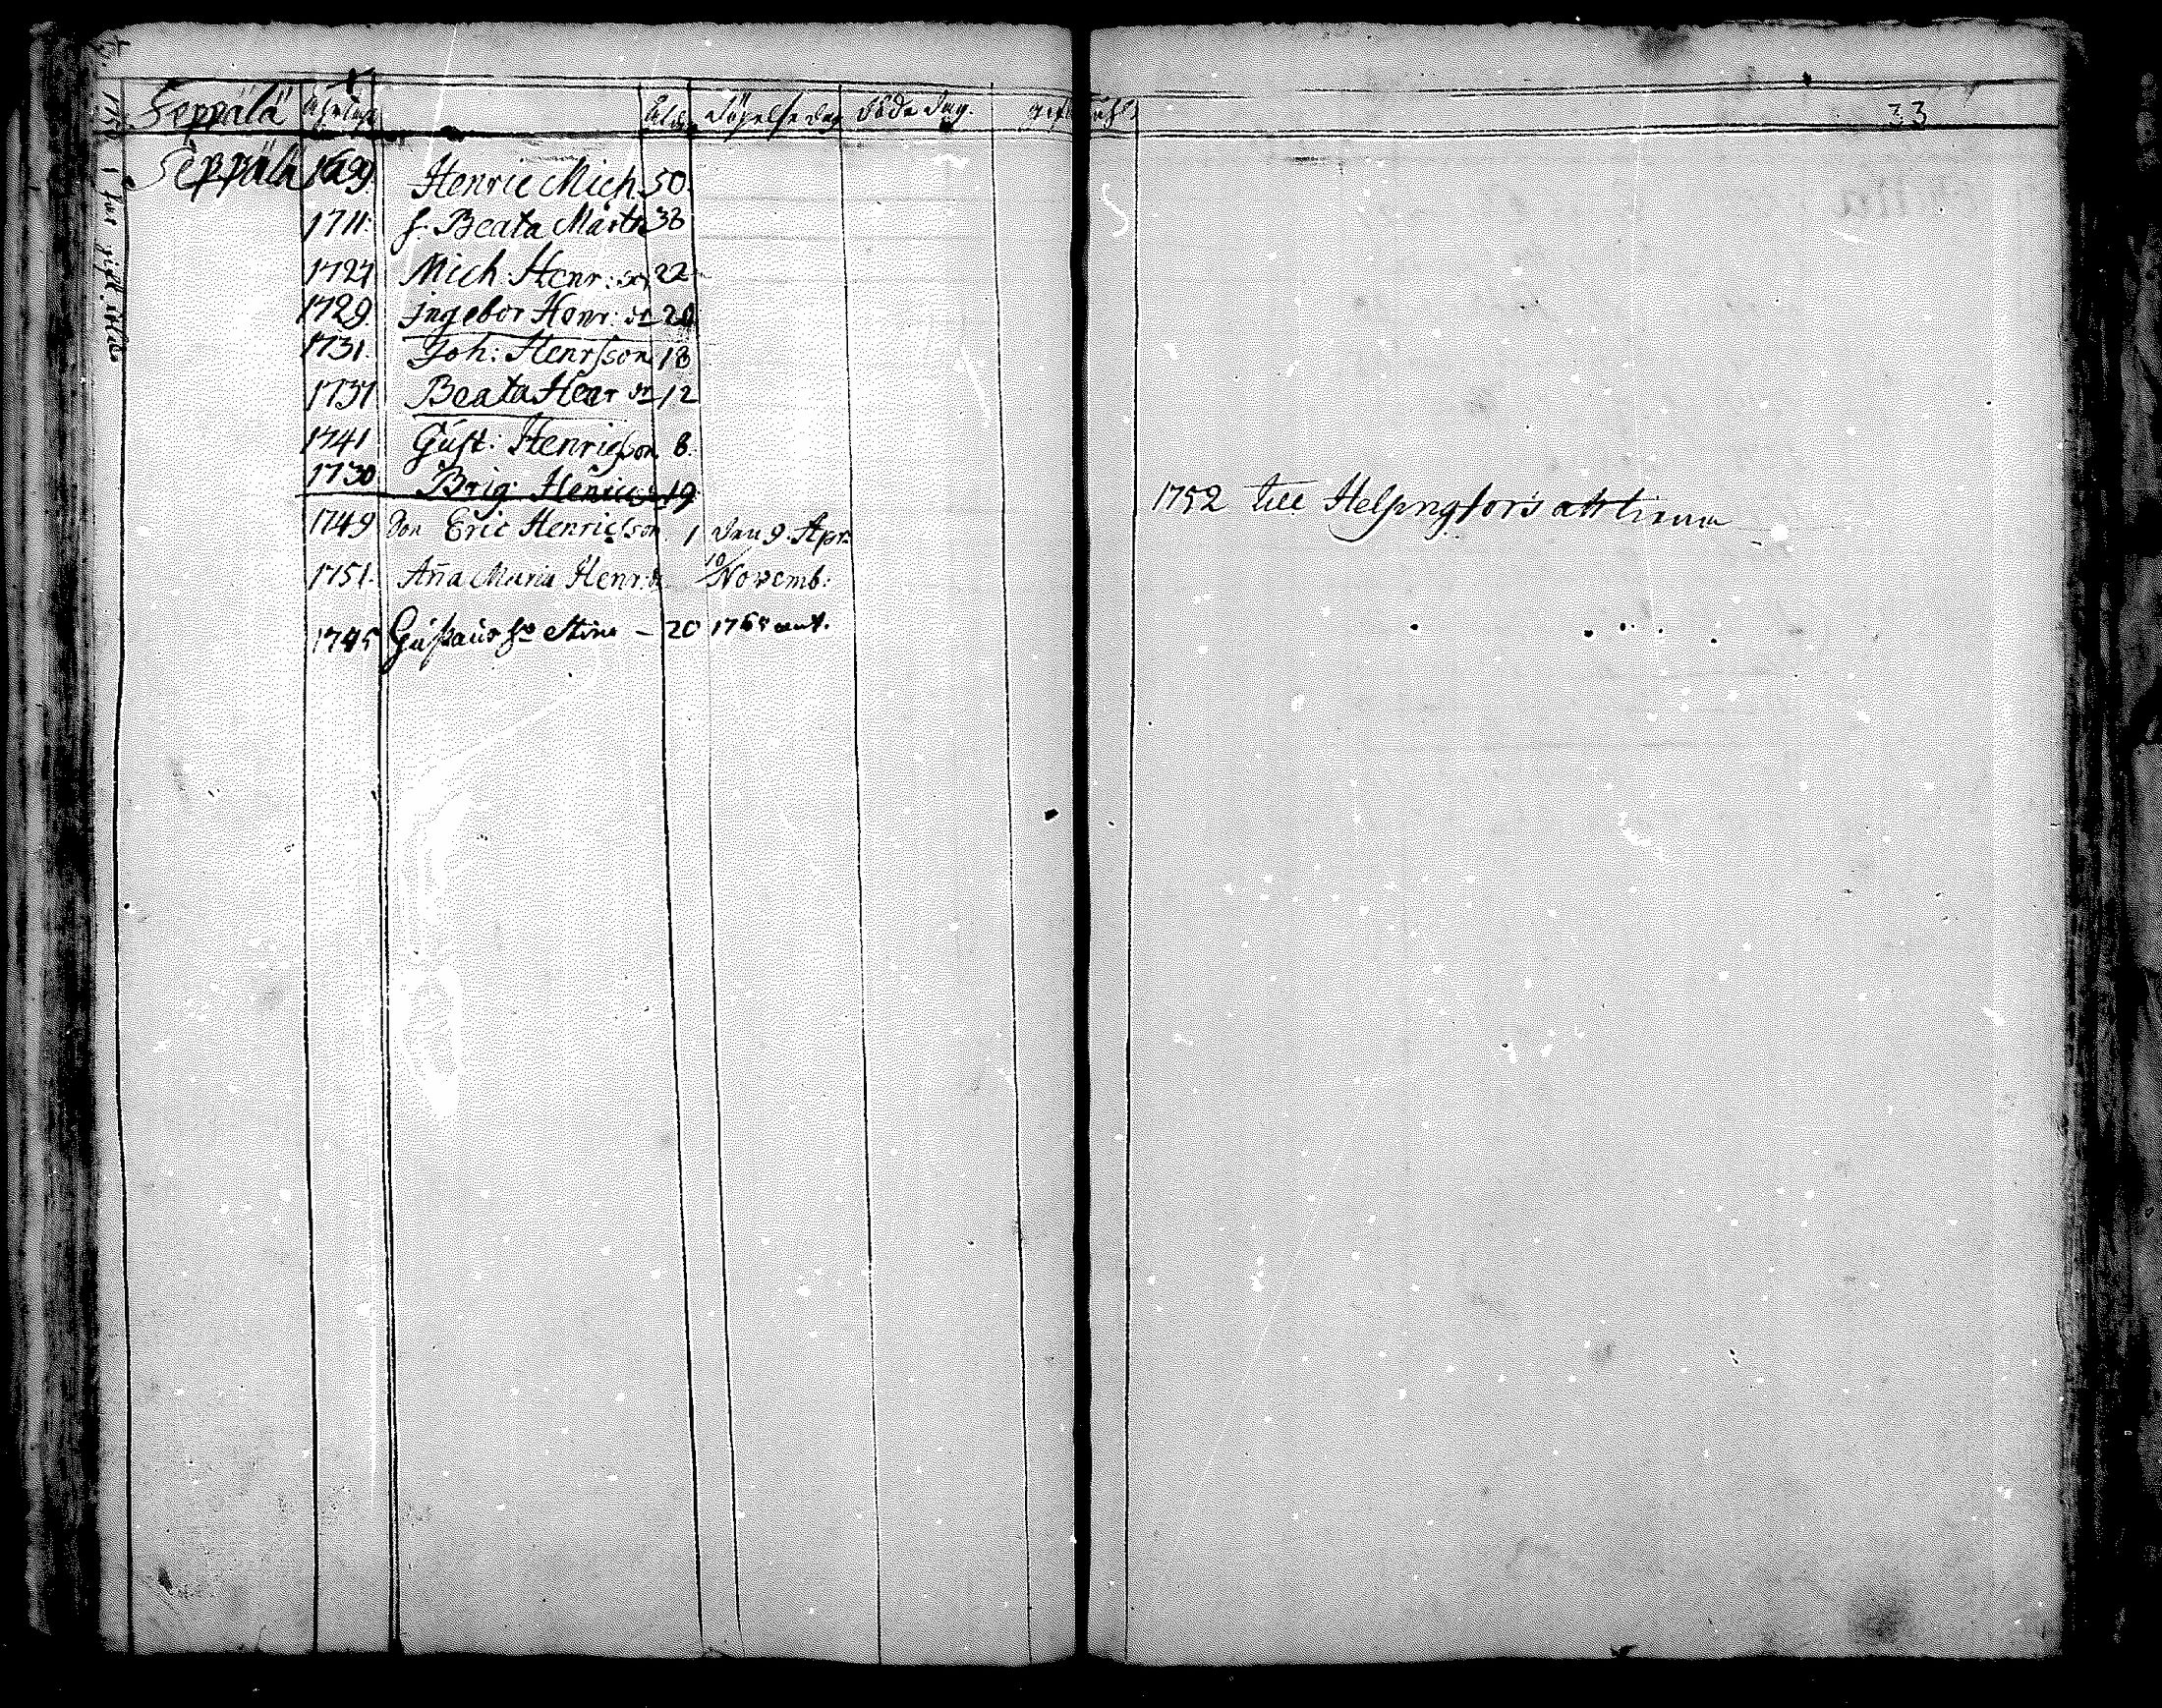 Seppälä Åhrtahl Ålder Döpelse dag Döde dag. 33
Seppälä 1699 Henric Mich. 50.
1711. h. Beata Märtn 38
1727 Mich Henr: son 22
1729. Ingebor Henr: dr 20
1731. Joh: Henrsson 18
1737 Beata Henr dr 12
1741 Gust: Henricsson 8.
1730 Brig: Henricsdr 19
1752 till Helsingfors att tiena
1749 Son Eric Henricsson 1 den 9. Apr:
1751. Aña Maria Henr: dr 10 Novemb:
1745 Gustavs ho Stina - 20 1765